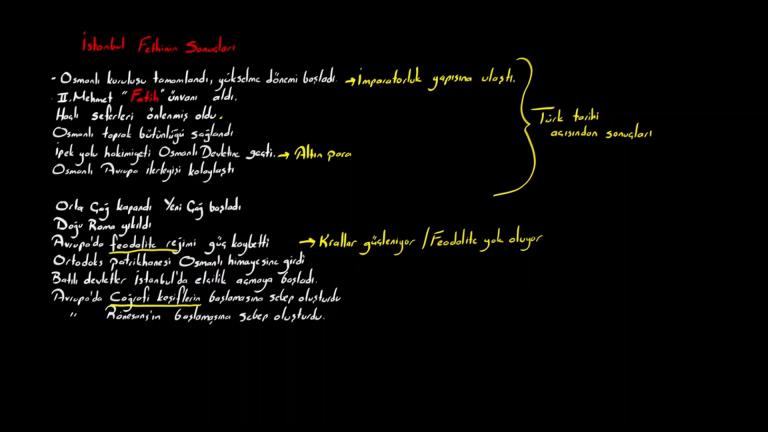 İstanbul Fethinin Sonuçları
- Osmanlı kuruluşu tamamlandı, yükselme dönemi başladı. → İmparatorluk yapısına ulaştı.
. II. Mehmet "Fatih" ünvanı aldı.
Haçlı seferleri önlenmiş oldu.
Osmanlı toprak bütünlüğü sağlandı
İpek yolu hakimiyeti Osmanlı Devletine geçti. → Altın para
Osmanlı Avrupa ilerleyişi kolaylaştı
Türk tarihi
açısından sonuçları
Orta Çağ kapandı Yeni Çağ başladı
Doğu Roma yıkıldı
Avrupa'da feodalite rejimi güç kaybetti → Krallar güçleniyor / Feodalite yok oluyor
Ortodoks patrikhanesi Osmanlı himayesine girdi
Batılı devletler İstanbul'da elçilik açmaya başladı.
Avrupa'da Coğrafi keşiflerin başlamasına sebep oluşturdu
" Rönesans'ın başlamasına sebep oluşturdu.